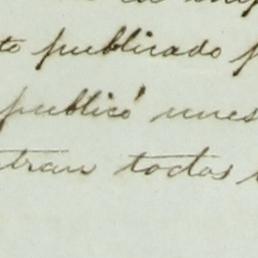 to publicado p
publicó nues
tran todos